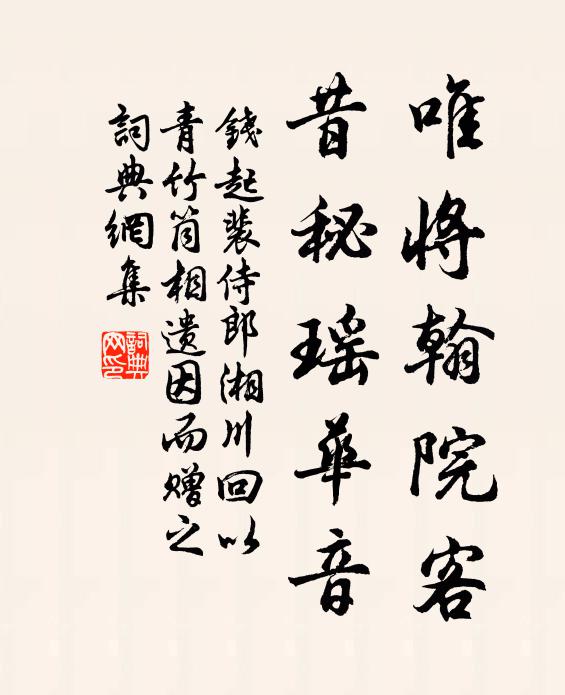 唯將翰院客
昔秘瑶華音
錢起裴侍郎湘川回以
青竹筒相遗因而赠之
詞典網集
詞典網印